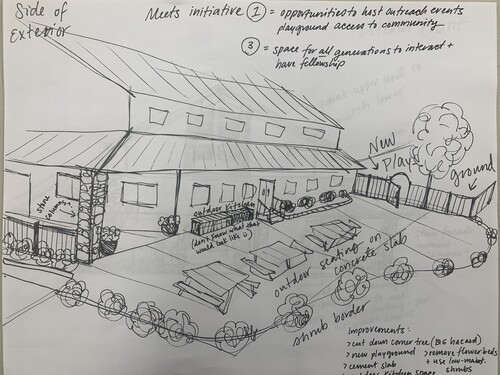 Side of
Exterior
Meets initiative ① = opportunities to host outreach events
playground access to community
③ = space for all generations to interact +
have fellowship
New
plays
ground
stone
columns
outdoor kitchen
(don't know what that
would look like ☺)
outdoor seating on
concrete slab
shrub border
Improvements:
> cut down corner tree (BIG hazard)
> new playground > remove flower beds
> cement slab + use low-maint.
kitchen space shrubs